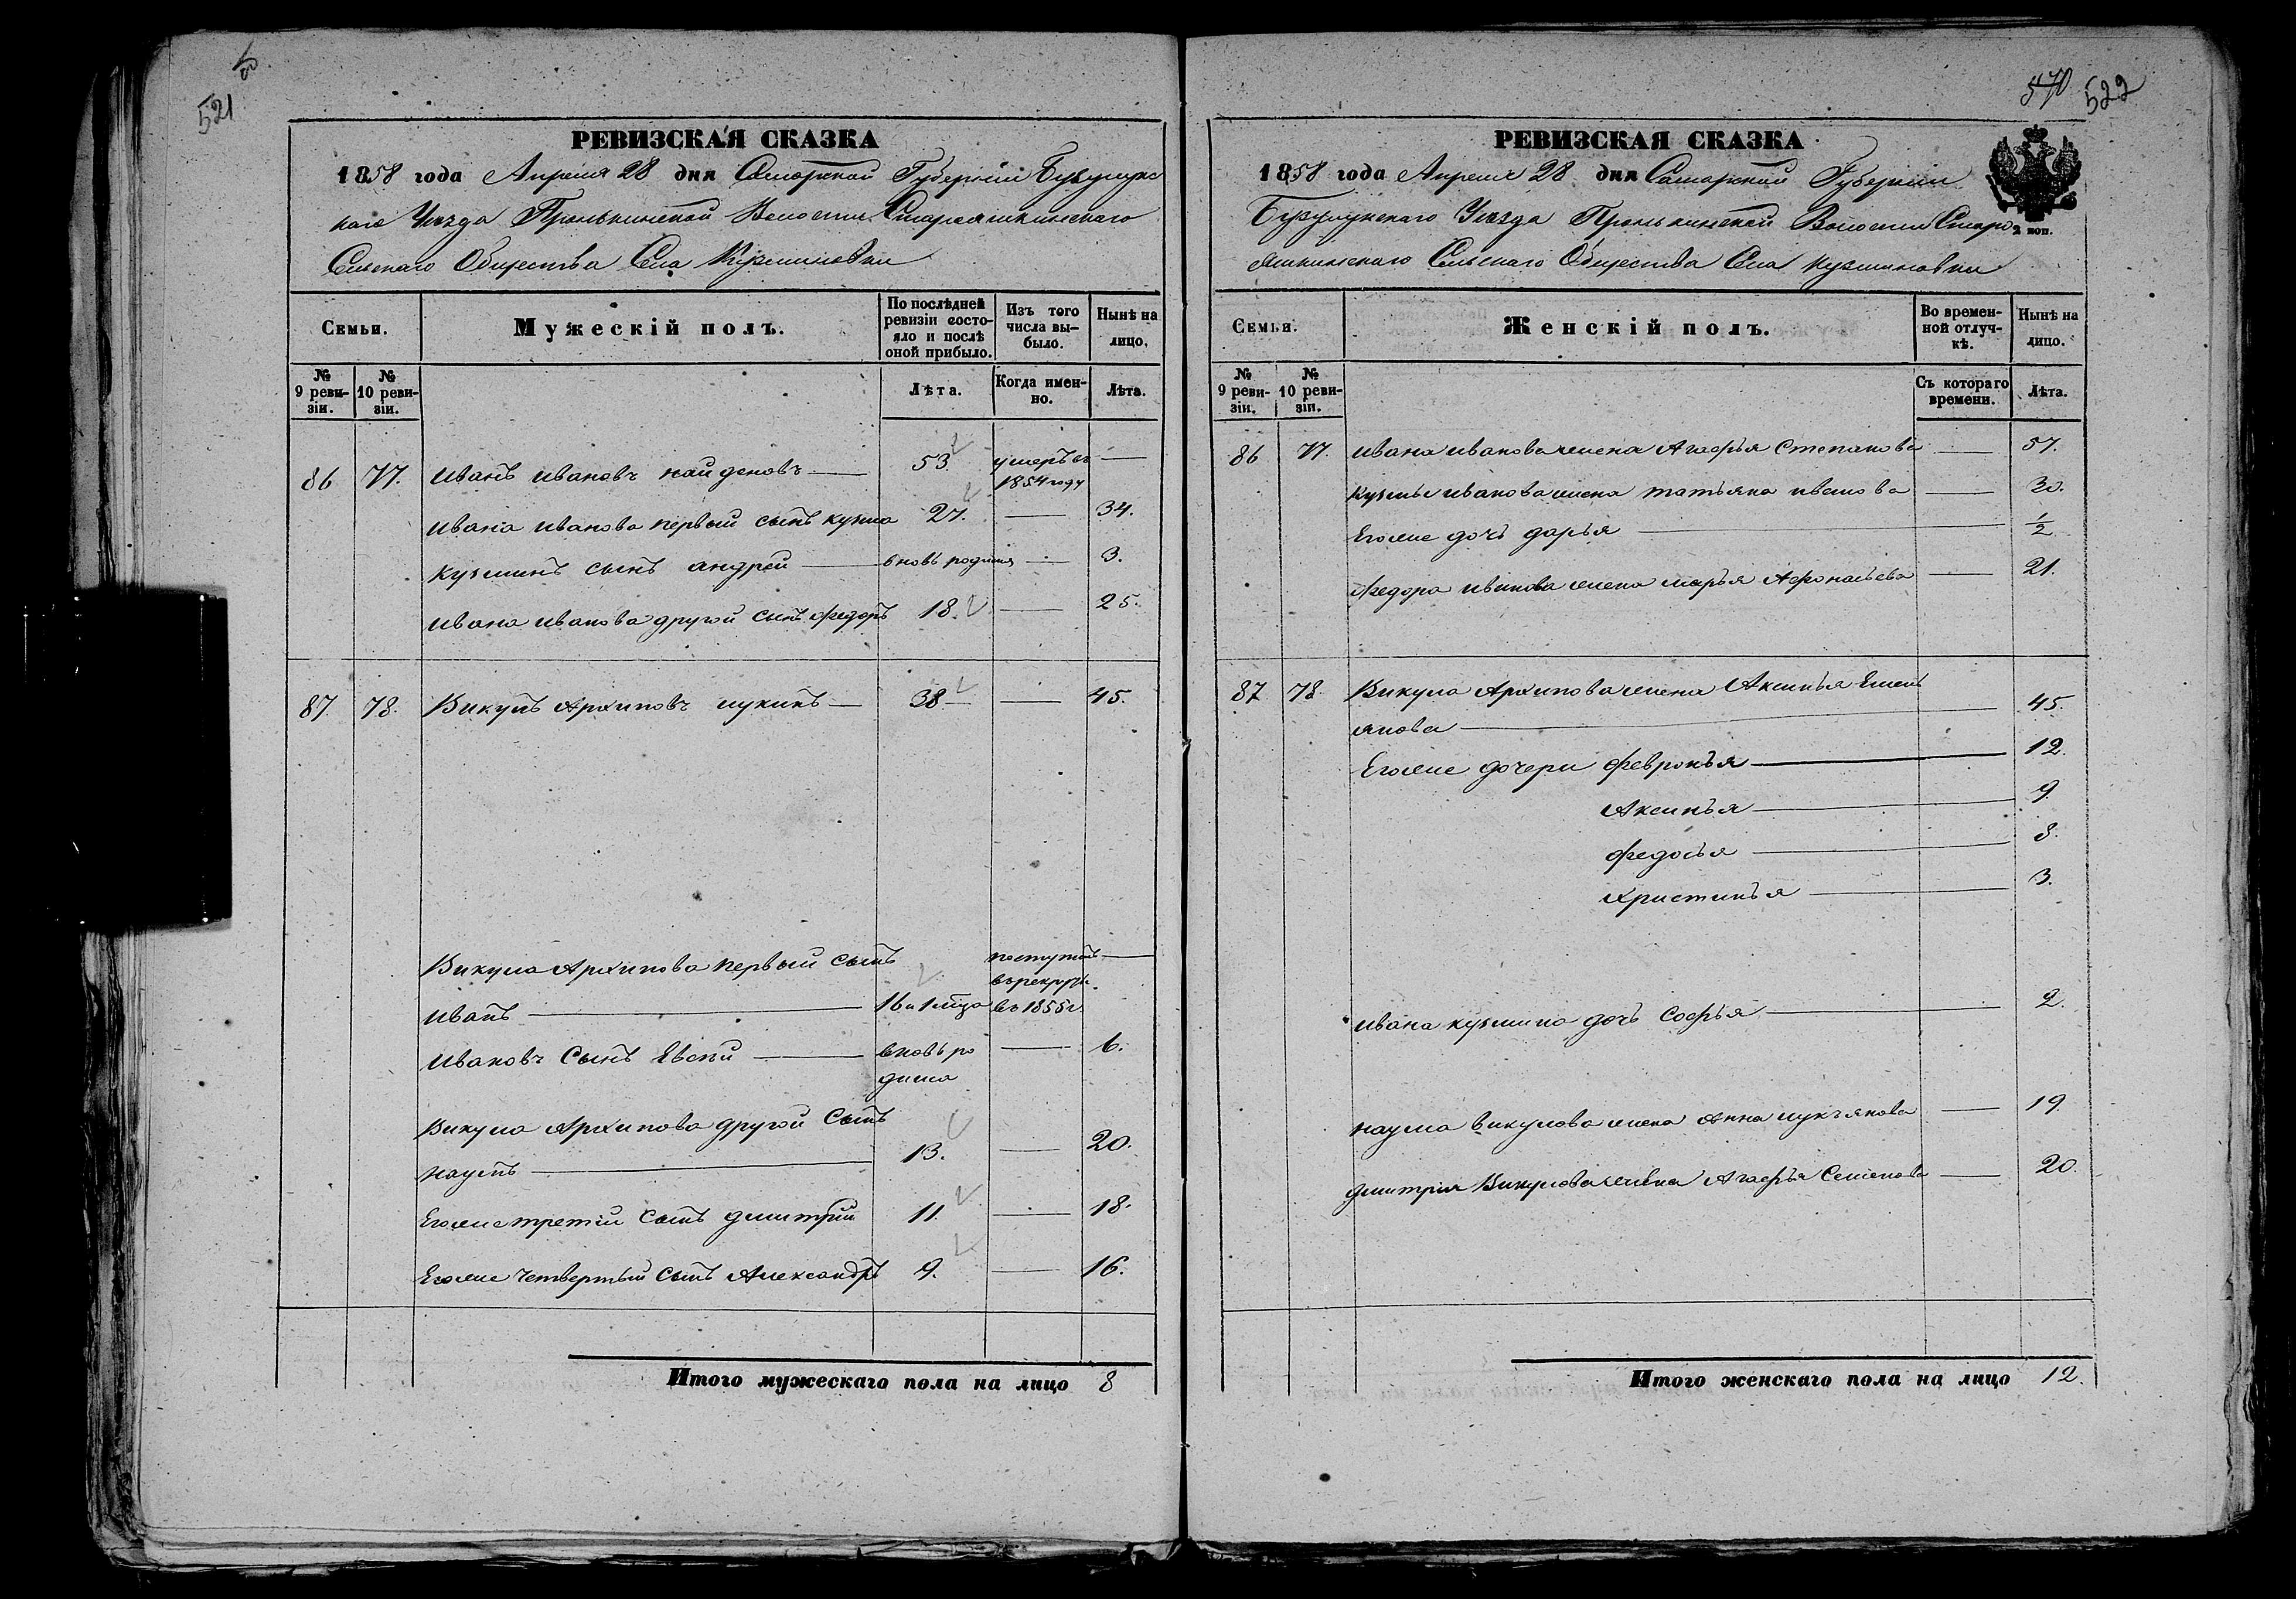 521
РЕВИЗСКАЯ СКАЗКА
1858 года Апреля 28 дня Самарской Губернии Бузулукс
каго Уезда Пронькинской Волости Старояшкинскаго
Сельскаго Общества Села Кузминовки
Семьи.
Мужескій полъ.
По послѣдней ревизіи состояло и послѣ оной прибыло.
Изъ того числа выбыло.
Нынѣ на лицо.
№ 9 ревизіи.
№ 10 ревизіи.
Лѣта.
Когда именно.
Лѣта.
86 77. Иванъ Ивановъ Найденовъ — 53 умеръ въ —
1854 году
Ивана Иванова первый сынъ Кузма 27. — 34.
Кузминъ сынъ Андрей — вновь родился — 3.
Ивана Иванова другой сынъ Федоръ 18. — 25.
87. 78. Викулъ Архиповъ Лукинъ — 38 — 45.
Викула Архипова первый сынъ поступилъ —
въ рекруты
Иванъ — 16 и 1 мѣсца въ 1855 г
Ивановъ сынъ Евсей — вновь ро — 6.
дился
Викула Архипова другой сынъ
Наумъ — 13. — 20.
Его же третий сынъ Дмитрий 11. — 18.
Его же четвертый сынъ Александръ 9. — 16.
Итого мужескаго пола на лицо 8
570 522
РЕВИЗСКАЯ СКАЗКА
2 коп.
1858 года Апреля 28 дня Самарской Губернии
Бузулукскаго Уезда Пронькинской Волости Старо
яшкинскаго Сельскаго Общества Села Кузминовки
Семьи.
Женскій полъ.
Во временной отлучкѣ.
Нынѣ на лицо.
№ 9 ревизіи.
№ 10 ревизіи.
Съ котораго времени.
Лѣта.
86 77. Ивана Иванова жена Агафья Степанова — 57.
Кузмы Иванова жена Татьяна Иванова — 30.
Его же дочь Дарья — 1/2
Федора Иванова жена Марья Афонасьева — 21.
87 78 Викула Архипова жена Аксинья Емель
янова — 45.
Его же дочери Февронья — 12.
Аксинья — 9
Федосья — 8.
Христинья — 3.
Ивана Кузмина дочь Софья — 2.
Наума Викулова жена Анна Лукъянова — 19.
Дмитрия Викулова жена Агафья Семенова — 20.
Итого женскаго пола на лицо 12.